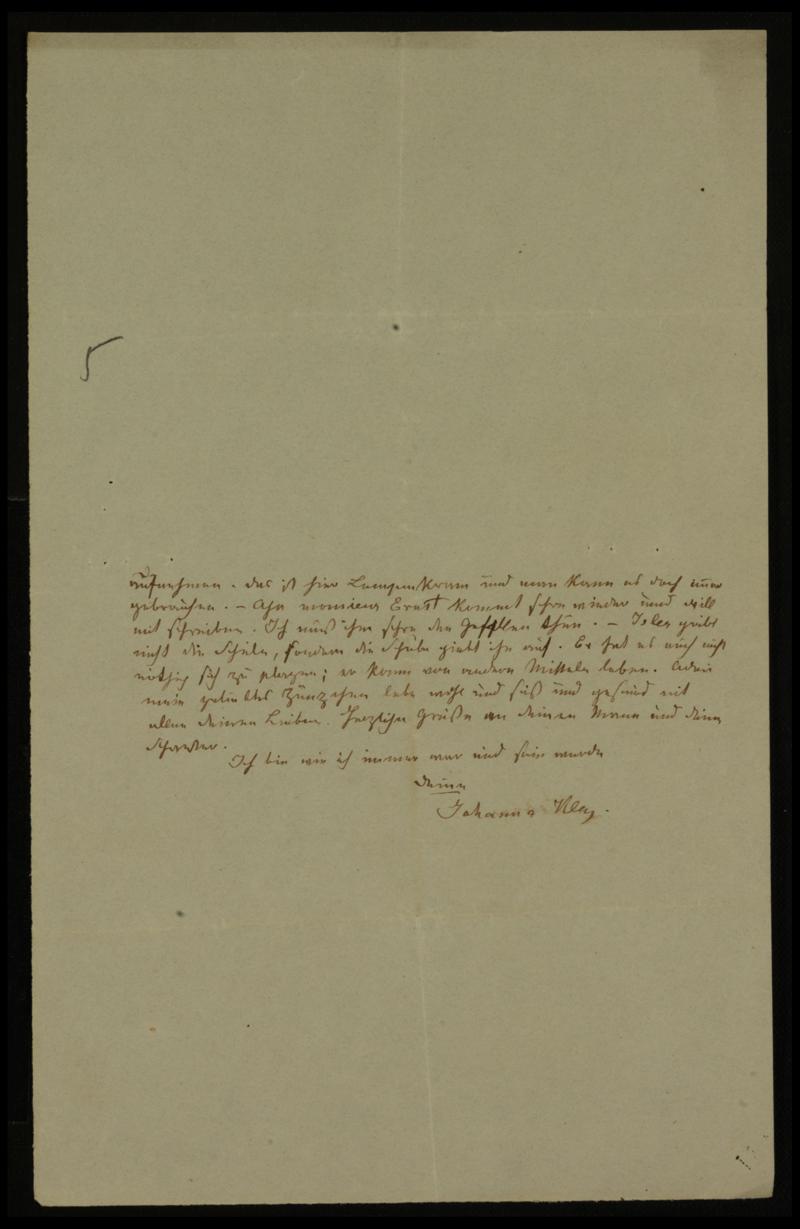 5
aufnehmen. das ist hier Lumpenkram und man kann es doch immer
gebrauchen. – Aha monsieur Ernst kommt schon wieder und will
mit schreiben. Ich muß ihm schon den Gefallen thun. – giebt
nicht die Schule, sondern die Schule giebt ihn auf. Er hat es auch nicht
nöthig sich zu plagen; er kann von andern Mitteln leben. Adieu
mein geliebtes lebe wohl und süß und gesund mit
allen deinen Lieben. Herzliche Grüße an deinen Mann und deine
Schwester.
Ich bin wie ich immer war und sein werde
deine
Johanna